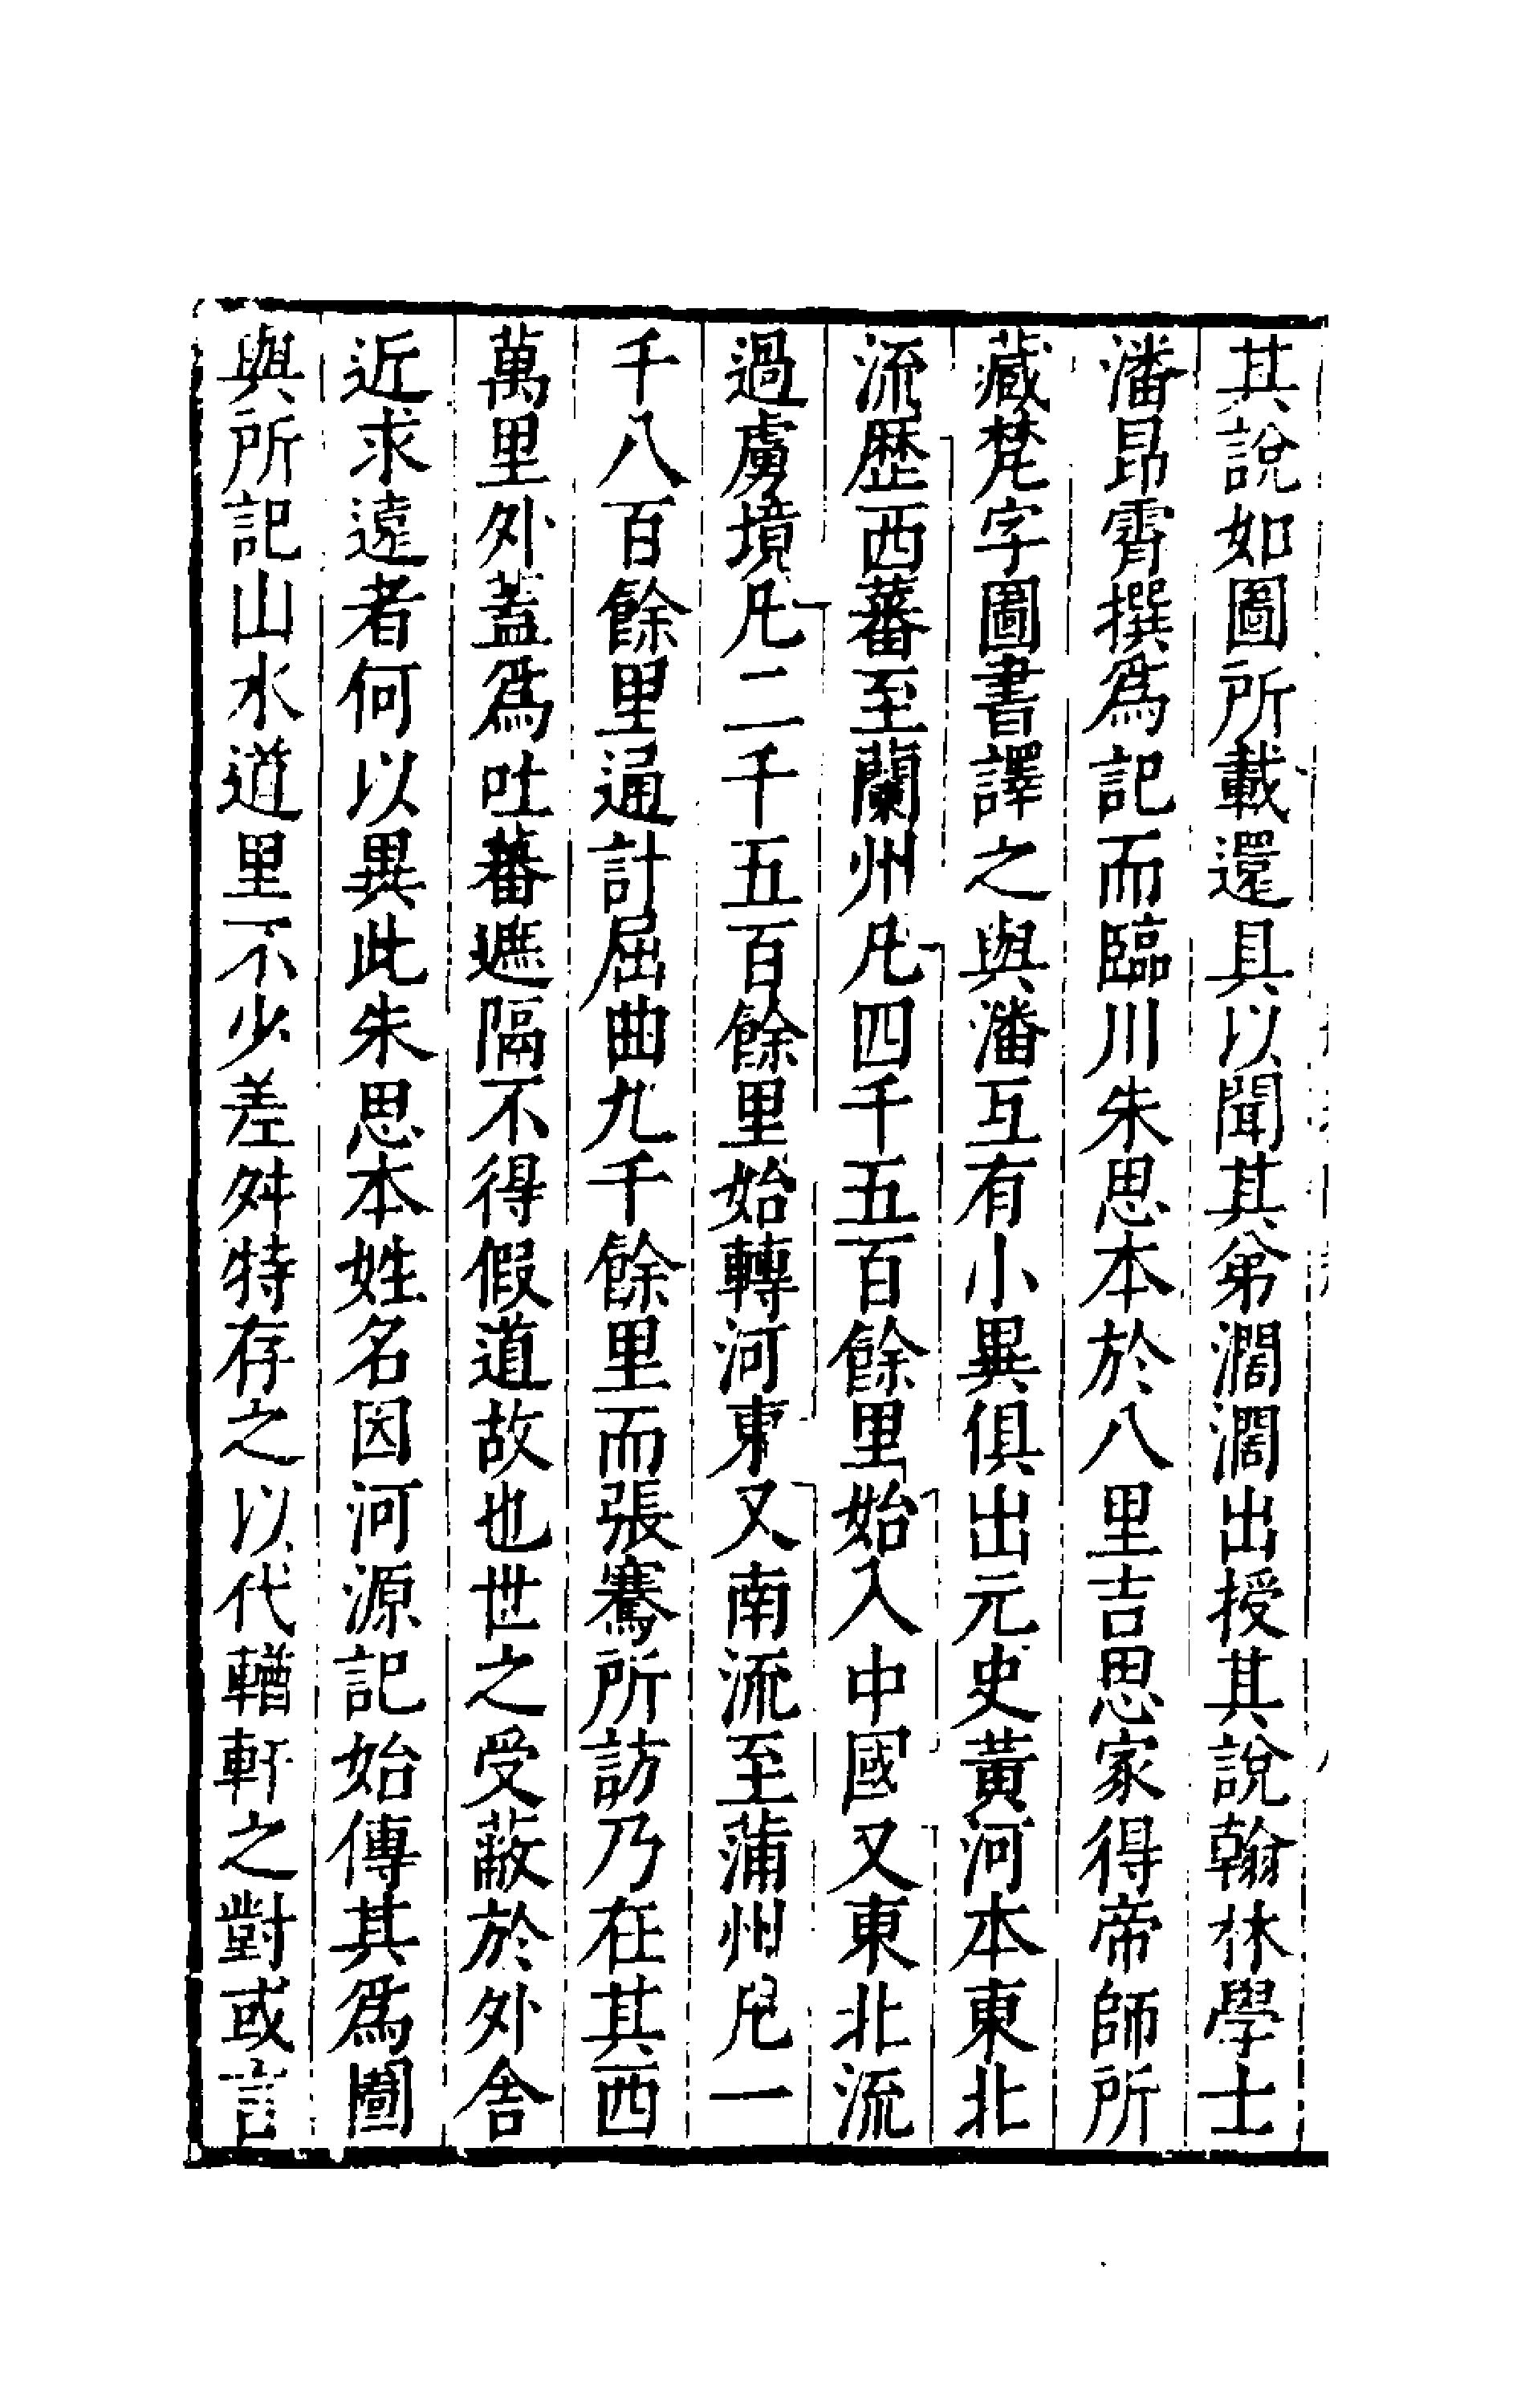 其說如圖所載還具以聞其弟濶濶出授其說翰林學士
潘昂霄撰爲記而臨川朱思本於八里吉思家得帝師所
藏梵字圖書譯之與潘互有小異俱出元史黃河本東北
流歷西蕃至蘭州凡四千五百餘里始入中國又東北流
過虜境凡二千五百餘里始轉河東又南流至蒲州凡一
千八百餘里通計屈曲九千餘里而張騫所訪乃在其西
萬里外蓋爲吐蕃遮隔不得假道故也世之受蔽於外舍
近求遠者何以異此朱思本姓名因河源記始傳其爲圖
與所記山水道里不少差舛特存之以代輶軒之對或言